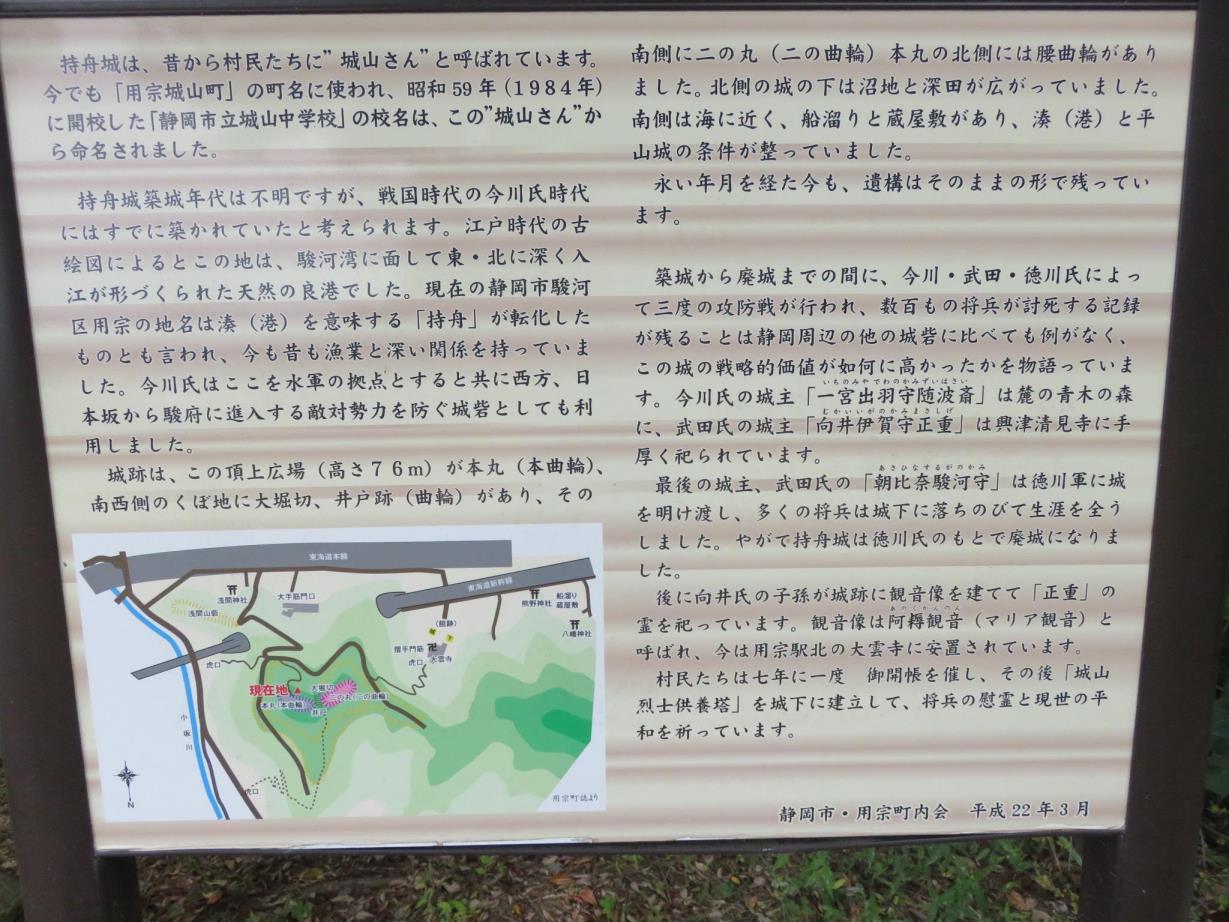 持舟城は、昔から村民たちに”城山さん”と呼ばれています。
今でも「用宗城山町」の町名に使われ、昭和59年(1984年)
に開校した「静岡市立城山中学校」の校名は、この”城山さん”か
ら命名されました。
持舟城築城年代は不明ですが、戦国時代の今川氏時代
にはすでに築かれていたと考えられます。江戸時代の古
絵図によるとこの地は、駿河湾に面して東・北に深く入
江が形づくられた天然の良港でした。現在の静岡市駿河
区用宗の地名は湊（港）を意味する「持舟」が転化した
ものとも言われ、今も昔も漁業と深い関係を持っていま
した。今川氏はここを水軍の拠点とすると共に西方、日
本坂から駿府に進入する敵対勢力を防ぐ城砦としても利
用しました。
城跡は、この頂上広場（高さ７６ｍ）が本丸（本曲輪）、
南西側のくぼ地に大堀切、井戸跡（曲輪）があり、その
南側に二の丸（二の曲輪）本丸の北側には腰曲輪があり
ました。北側の城の下は沼地と深田が広がっていました。
南側は海に近く、船溜りと蔵屋敷があり、湊（港）と平
山城の条件が整っていました。
永い年月を経た今も、遺構はそのままの形で残ってい
ます。
築城から廃城までの間に、今川・武田・徳川氏によっ
て三度の攻防戦が行われ、数百もの将兵が討死する記録
が残ることは静岡周辺の他の城砦に比べても例がなく、
この城の戦略的価値が如何に高かったかを物語っていま
いちのみやでわのかみずいはさい
す。今川氏の城主「一宮出羽守随波斎」は麓の青木の森
むかいいがのかみまさしげ
に、武田氏の城主「向井伊賀守正重」は興津清見寺に手
厚く祀られています。
あさひなするがのかみ
最後の城主、武田氏の「朝比奈駿河守」は徳川軍に城
を明け渡し、多くの将兵は城下に落ちのびて生涯を全う
しました。やがて持舟城は徳川氏のもとで廃城になりま
した。
後に向井氏の子孫が城跡に観音像を建てて「正重」の
あのくかんのん
霊を祀っています。観音像は阿耨観音（マリア観音）と
呼ばれ、今は用宗駅北の大雲寺に安置されています。
村民たちは七年に一度　御開帳を催し、その後「城山
烈士供養塔」を城下に建立して、将兵の慰霊と現世の平
和を祈っています。
静岡市・用宗町内会　平成22年3月
東海道本線
東海道新幹線
浅間神社
大手筋門口
浅間山砦
熊野神社
船溜り
蔵屋敷
八幡神社
(館跡)
搦手門筋
大雲寺
虎口
虎口
現在地
大堀切
本丸(本曲輪)
二の丸(二の曲輪)
井戸
小坂川
虎口
N
用宗町誌より